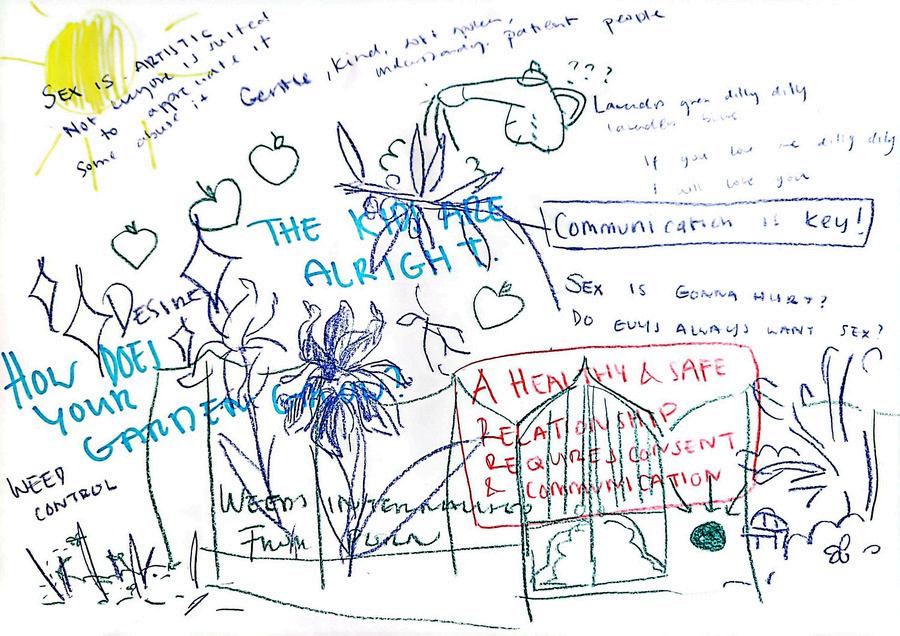 SEX IS ARTISTIC
Not anyone is suited
to appreciate it
some abuse it
Gentle, Kind, soft spoken,
understanding, patient people
???
Lavenders green dilly dilly
lavenders blue
If you love me dilly dilly
I will love you
THE KIDS ARE
ALRIGHT.
Communication is key!
DESIRE
SEX IS GONNA HURT?
DO GUYS ALWAYS WANT SEX?
HOW DOES
YOUR
GARDEN GROW?
A HEALTHY & SAFE
RELATIONSHIP
REQUIRES CONSENT
& COMMUNICATION
WEED
CONTROL
WEEDS INTERNALISED
From Porn